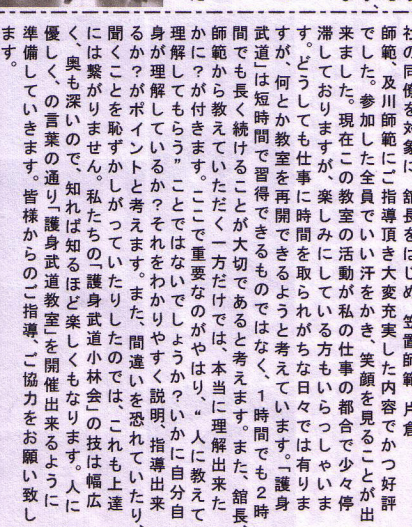 社の同僚を対象に、舘長をはじめ、笠置師範、片倉
師範、及川師範にご指導頂き大変充実した内容でかつ好評
でした。参加した全員でいい汗をかき、笑顔を見ることが出
来ました。現在この教室の活動が私の仕事の都合で少々停
滞しておりますが、楽しみにしている方もいらっしゃいま
す。どうしても仕事に時間を取られがちな日々では有りま
すが、何とか教室を再開できるようと考えています。「護身
武道」は短時間で習得できるものではなく、1時間でも2時
間でも長く続けることが大切であると考えます。また、舘長、
師範から教えていただく一方だけでは、本当に理解出来た
かに?が付きます。ここで重要なのがやはり、“人に教えて
理解してもらう”ことではないでしょうか?いかに自分自
身が理解しているか?それをわかりやすく説明、指導出来
るか?がポイントと考えます。また、間違いを恐れていたり、
聞くことを恥ずかしがっていたりしたのでは、これも上達
には繋がりません。私たちの「護身武道小林会」の技は幅広
く、奥も深いので、知れば知るほど楽しくもなります。人に
優しく、の言葉の通り「護身武道教室」を開催出来るように
準備していきます。皆様からのご指導、ご協力をお願い致し
ます。